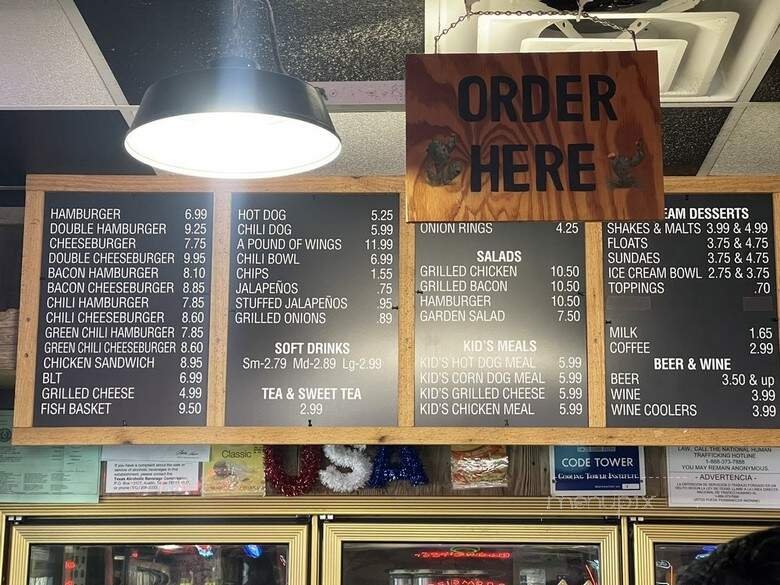 ORDER
HERE
HAMBURGER 6.99
DOUBLE HAMBURGER 9.25
CHEESEBURGER 7.75
DOUBLE CHEESEBURGER 9.95
BACON HAMBURGER 8.10
BACON CHEESEBURGER 8.85
CHILI HAMBURGER 7.85
CHILI CHEESEBURGER 8.60
GREEN CHILI HAMBURGER 7.85
GREEN CHILI CHEESEBURGER 8.60
CHICKEN SANDWICH 8.95
BLT 6.99
GRILLED CHEESE 4.99
FISH BASKET 9.50
HOT DOG 5.25
CHILI DOG 5.99
A POUND OF WINGS 11.99
CHILI BOWL 6.99
CHIPS 1.55
JALAPEÑOS .75
STUFFED JALAPEÑOS .95
GRILLED ONIONS .89
SOFT DRINKS
Sm-2.79 Md-2.89 Lg-2.99
TEA & SWEET TEA
2.99
ONION RINGS 4.25
SALADS
GRILLED CHICKEN 10.50
GRILLED BACON 10.50
HAMBURGER 10.50
GARDEN SALAD 7.50
KID'S MEALS
KID'S HOT DOG MEAL 5.99
KID'S CORN DOG MEAL 5.99
KID'S GRILLED CHEESE 5.99
KID'S CHICKEN MEAL 5.99
EAM DESSERTS
SHAKES & MALTS 3.99 & 4.99
FLOATS 3.75 & 4.75
SUNDAES 3.75 & 4.75
ICE CREAM BOWL 2.75 & 3.75
TOPPINGS .70
MILK 1.65
COFFEE 2.99
BEER & WINE
BEER 3.50 & up
WINE 3.99
WINE COOLERS 3.99
Classic
USA
CODE TOWER
COOLING TOWER INSTITUTE
LAW, CALL THE NATIONAL HUMAN
TRAFFICKING HOTLINE
1-888-373-7888
YOU MAY REMAIN ANONYMOUS.
- ADVERTENCIA -
menupix